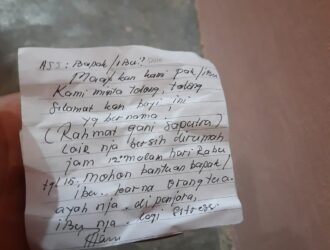 ASS: Bapak / ibu? Date
Maaf kan kami pak/ibu
Kami minta tolong, tolong
Silamat kan bayi, ini
yg bernama
(Rahmat gani Saputra)
Lair nja bersih dirumah
jam 12:00 malam hari Rabu
tgl 15. mohon bantuan bapak/
ibu. karna orang tua
ayah nja. di penjara,
ibu nja. lagi Sitress.